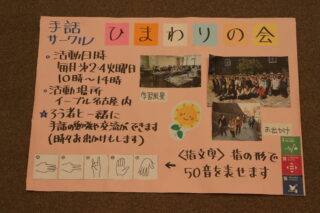 手話
サークル
ひまわりの会
活動日時
毎月第2.4火曜日
10時〜14時
活動場所
イーブル名古屋 内
ろう者と一緒に
手話の勉強や交流ができます
(時々お出かけもします)
学習風景
お出かけ
←〈指文字〉指の形で
50音を表せます